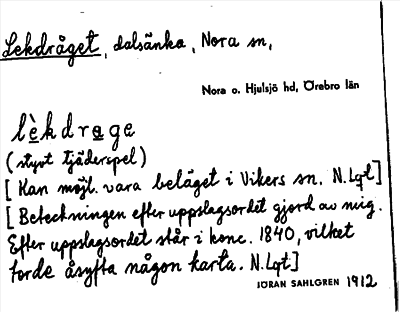 Lekdråget, dalsänka, Nora sn,
Nora o. Hjulsjö hd, Örebro län
lèkdrage
(styvt tjäderspel)
[Kan möjl. vara beläget i Vikers sn. N.Lgt]
[Beteckningen efter uppslagsordet gjord av mig.
Efter uppslagsordet står i konc. 1840, vilket
torde åsyfta någon karta. N.Lgt]
JÖRAN SAHLGREN 1912